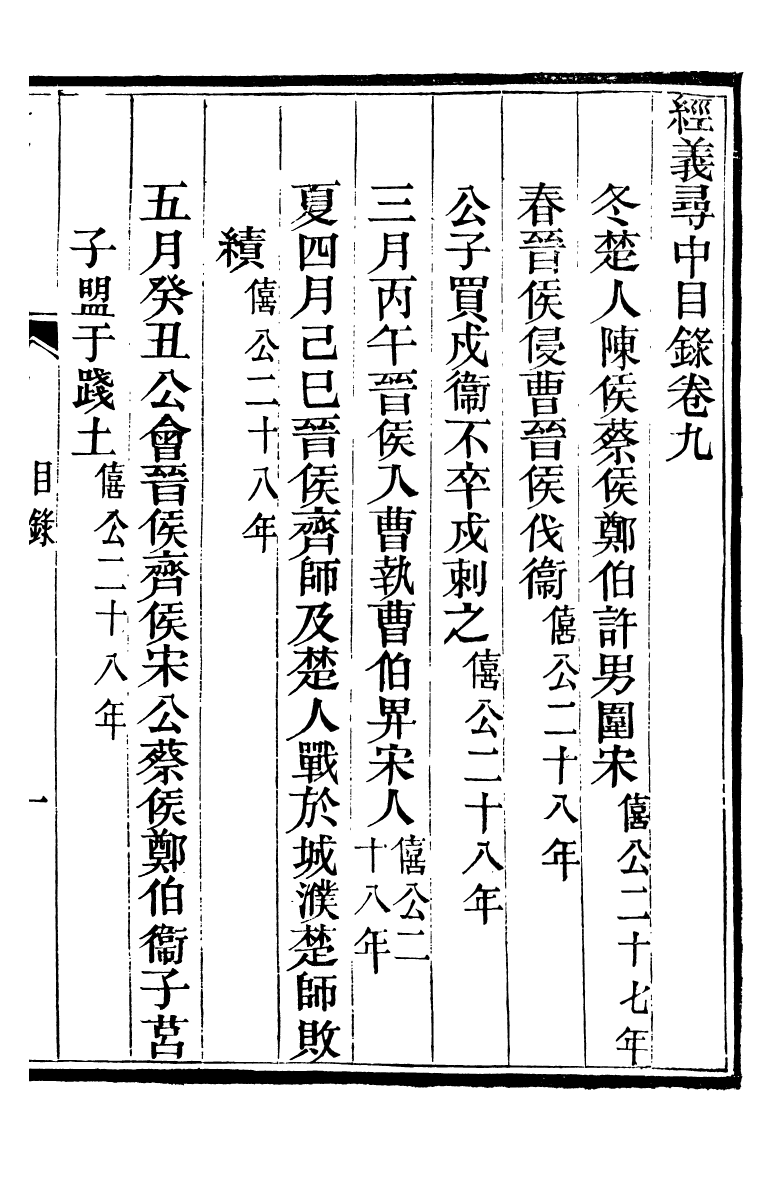 經義尋中目錄卷九
冬楚人陳侯蔡侯鄭伯許男圍宋僖公二十七年
春晉侯侵曹晉侯伐衞僖公二十八年
公子買戍衞不卒戍刺之僖公二十八年
三月丙午晉侯入曹執曹伯畀宋人僖公二十八年
夏四月己巳晉侯齊師及楚人戰於城濮楚師敗
績僖公二十八年
五月癸丑公會晉侯齊侯宋公蔡侯鄭伯衞子莒
子盟于踐土僖公二十八年
目錄 一